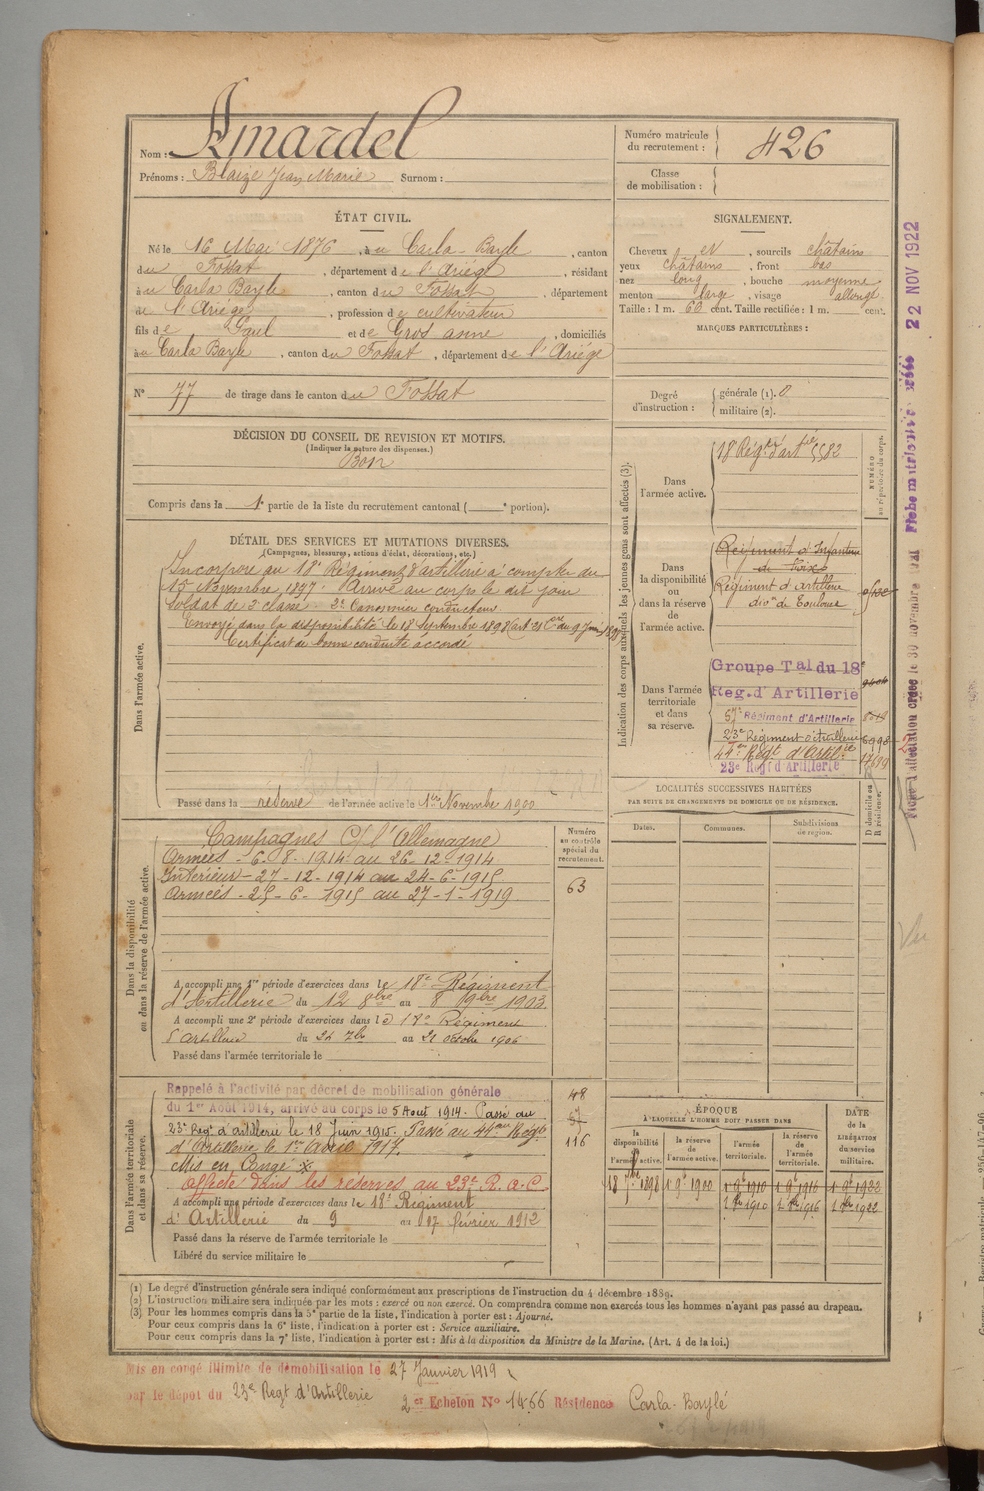 Nom : Amardel
Prénoms : Blaize Jean Marie Surnom :
Numéro matricule du recrutement : 426
Classe de mobilisation :
ÉTAT CIVIL.
Né le 16 Mai 1876, à u Carla-Bayle, canton
du Fossat, département de l'Ariège, résidant
à u Carla Bayle, canton du Fossat, département
de l'Ariège, profession de cultivateur
fils de Paul et de Gros anne, domiciliés
à u Carla Bayle, canton du Fossat, département de l'Ariège
N° 77 de tirage dans le canton du Fossat
SIGNALEMENT.
Cheveux et, sourcils châtains
yeux châtains, front bas
nez long, bouche moyenne
menton large, visage allongé
Taille : 1 m. 60 cent. Taille rectifiée : 1 m. cent.
MARQUES PARTICULIÈRES :
Degré d'instruction : générale (1). 0
militaire (2).
DÉCISION DU CONSEIL DE REVISION ET MOTIFS.
(Indiquer la nature des dispenses.)
Bon
Compris dans la 1e partie de la liste du recrutement cantonal ( e portion).
DÉTAIL DES SERVICES ET MUTATIONS DIVERSES.
(Campagnes, blessures, actions d'éclat, décorations, etc.)
Dans l'armée active.
Incorporé au 18e Régiment d'artillerie à compter du
15 Novembre 1897. Arrivé au corps le dit jour
Soldat de 2e classe 2e Canonnier conducteur
Envoyé dans la disponibilité le 18 Septembre 1898
Certificat de bonne conduite accordé
Passé dans la réserve de l'armée active le 1er Novembre 1900
Indication des corps auxquels les jeunes gens sont affectés (3).
NUMÉRO au répertoire du corps.
Dans l'armée active.
18e Régt d'artie 5582
Dans la disponibilité ou dans la réserve de l'armée active.
Régiment d'Infanterie
de Foix
Régiment d'artillerie
divon de Toulouse
Dans l'armée territoriale et dans sa réserve.
Groupe Tal du 18e
Reg. d'Artillerie
57e Régiment d'Artillerie
23e Régiment d'Artillerie
44me Régt d'Artilie
23e Regt d'Artillerie
LOCALITÉS SUCCESSIVES HABITÉES
PAR SUITE DE CHANGEMENTS DE DOMICILE OU DE RÉSIDENCE.
D domicile ou R résidence.
Dates. Communes. Subdivisions de région.
Dans la disponibilité ou dans la réserve de l'armée active.
Numéro au contrôle spécial du recrutement.
63
Campagnes C/ l'Allemagne
Armées - 6-8-1914 au 26-12-1914
Intérieur - 27-12-1914 au 24-6-1915
Armées - 25-6-1915 au 27-1-1919
A accompli une 1re période d'exercices dans le 18e Régiment
d'Artillerie du 12 8bre au 8 9bre 1903
A accompli une 2e période d'exercices dans le 18e Régiment
d'Artillerie du 24 7bre au 21 octobre 1906
Passé dans l'armée territoriale le
Dans l'armée territoriale et dans sa réserve.
Rappelé à l'activité par décret de mobilisation générale
du 1er Août 1914, arrivé au corps le 5 Août 1914. Passé au
23e Regt d'artillerie le 18 Juin 1915. Passé au 44me Régt
d'Artillerie le 1er Avril 1917.
Mis en Congé
affecté dans les réserves au 23e R.A.C.
A accompli une période d'exercices dans le 18e Régiment
d'Artillerie du 9 au 17 février 1912
Passé dans la réserve de l'armée territoriale le
Libéré du service militaire le
48
57
116
ÉPOQUE
A LAQUELLE L'HOMME DOIT PASSER DANS
la disponibilité de l'armée active. la réserve de l'armée active. l'armée territoriale. la réserve de l'armée territoriale.
DATE de la LIBÉRATION du service militaire.
18 7bre 1898 1 9e 1900 1 9e 1910 1 9e 1916 1 9e 1922
1 8bre 1910 1 8bre 1916 1 8bre 1922
(1) Le degré d'instruction générale sera indiqué conformément aux prescriptions de l'instruction du 4 décembre 1889.
(2) L'instruction militaire sera indiquée par les mots : exercé ou non exercé. On comprendra comme non exercés tous les hommes n'ayant pas passé au drapeau.
(3) Pour les hommes compris dans la 5e partie de la liste, l'indication à porter est : Ajourné.
Pour ceux compris dans la 6e liste, l'indication à porter est : Service auxiliaire.
Pour ceux compris dans la 7e liste, l'indication à porter est : Mis à la disposition du Ministre de la Marine. (Art. 4 de la loi.)
Mis en congé illimité de démobilisation le 27 Janvier 1919
par le dépôt du 23e Regt d'Artillerie
2er Echelon No 1466 Résidence Carla-Baylé
22 NOV 1922